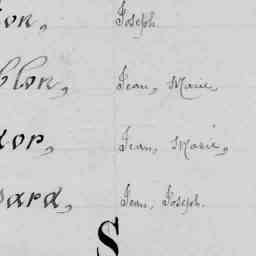 on, Joseph.
blon, Jean, Marie,
dor, Jean, Marie,
sard, Jean, Joseph.
S